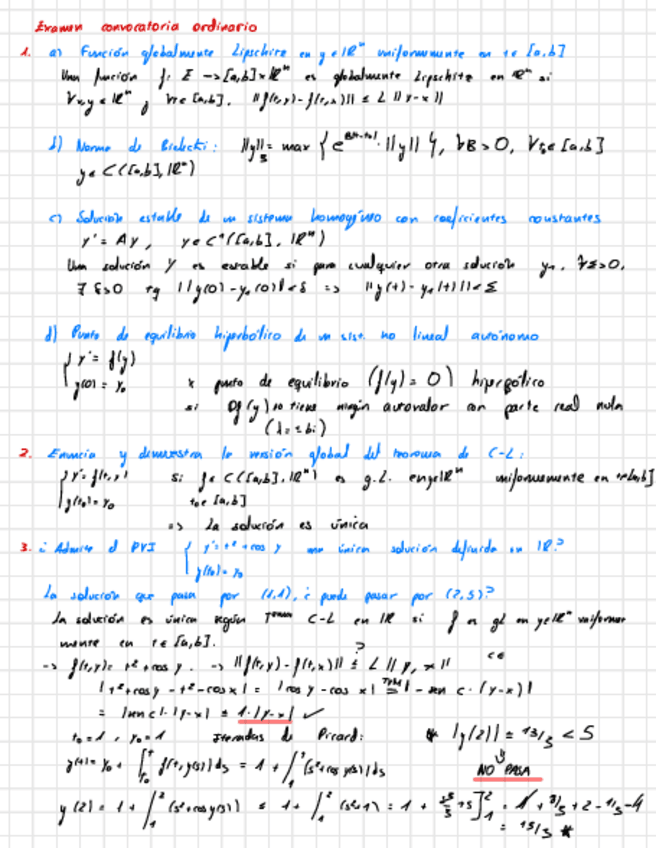 Examen convocatoria ordinario
1. a) Función globalmente Lipschitz en y ∈ ℝⁿ uniformemente en t ∈ [a,b]
Una función f: [a,b] × ℝⁿ es globalmente Lipschitz en ℝⁿ si
∀x,y ∈ ℝⁿ y ∀t ∈ [a,b], ||f(t,y) - f(t,x)|| ≤ L ||y-x||
b) Norma de Bielecki: ||y|| = max { ||y|| }, ∀B > 0, ∀t₀ ∈ [a,b]
y ∈ C([a,b], ℝⁿ)
c) Solución estable de un sistema homogéneo con coeficientes constantes
y' = Ay, y ∈ C¹([a,b], ℝⁿ)
Una solución y es estable si para cualquier otra solución y₁, ∀ε>0,
∃ δ>0 tq ||y(0) - y₁(0)|| < δ => ||y(t) - y₁(t)|| < ε
d) Punto de equilibrio hiperbólico de un sist. no lineal autónomo
{ y' = f(y)
y(0) = y₀ x punto de equilibrio (f(y) = 0) hiperbólico
si Df(y) no tiene ningún autovalor con parte real nula
(λ = ± bi)
2. Enuncia y demuestra la versión global del teorema de C-L:
{ y' = f(t,y) si f ∈ C([a,b], ℝⁿ) es g.L. en y ∈ ℝⁿ uniformemente en t ∈ [a,b]
y(t₀) = y₀ t₀ ∈ [a,b]
=> La solución es única
3. ¿Admite el PVI { y' = t² + cos y una única solución definida en ℝ?
y(t₀) = y₀
La solución que pasa por (1,1), ¿puede pasar por (2,5)?
La solución es única según Tema C-L en ℝ si f es gL en y ∈ ℝⁿ uniforme
mente en t ∈ [a,b].
-> f(t,y) = t² + cos y. -> ||f(t,y) - f(t,x)|| ≤? L ||y, x|| c ∈
|t² + cos y - t² - cos x| = |cos y - cos x| = |- sen c · (y-x)|
= |sen c| · |y-x| ≤ 1·|y-x| ✓
t₀ = 1, y₀ = 1 Iteradas de Picard: * |y(2)| = 13/3 < 5
y(t) = y₀ + ∫ f(s,y(s)) ds = 1 + ∫ (s² + cos y(s)) ds NO PASA
y(2) = 1 + ∫₁² (s² + cos y(s)) ≤ 1 + ∫₁² (s² + 1) = 1 + s³/3 + s]₁² = 1 + 8/3 + 2 - 1/3 - 1
= 13/3 *